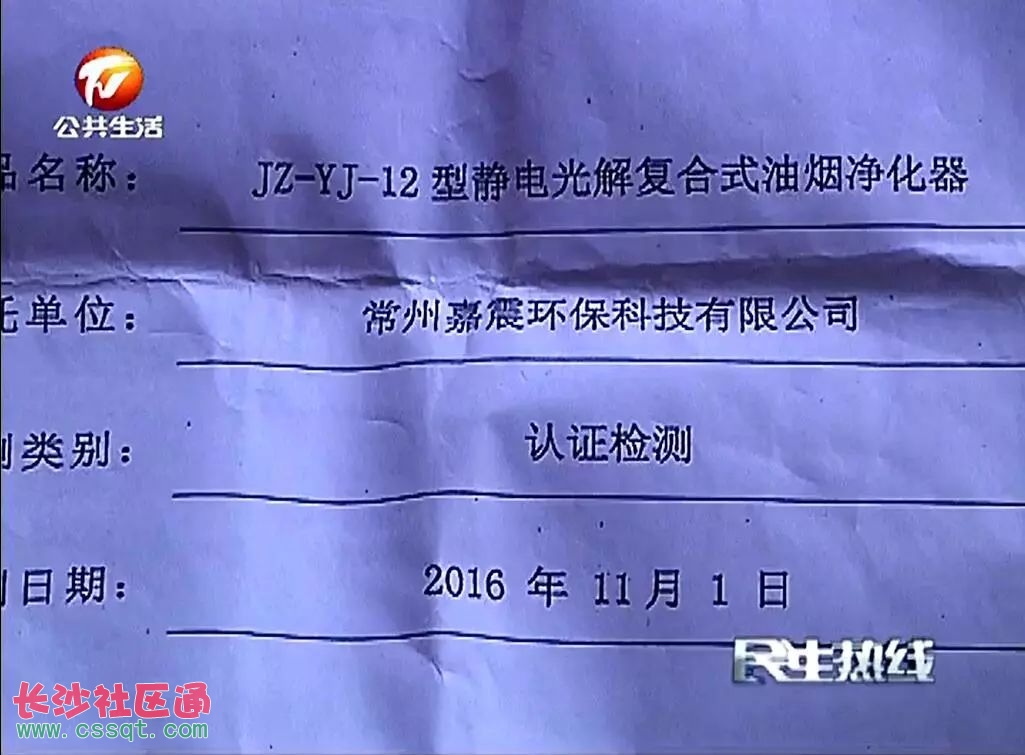 TV
公共生活
品名称: JZ-YJ-12型静电光解复合式油烟净化器
托单位: 常州嘉震环保科技有限公司
测类别: 认证检测
日期: 2016 年 11月 1 日
民生热线
长沙社区通
www.cssqt.com